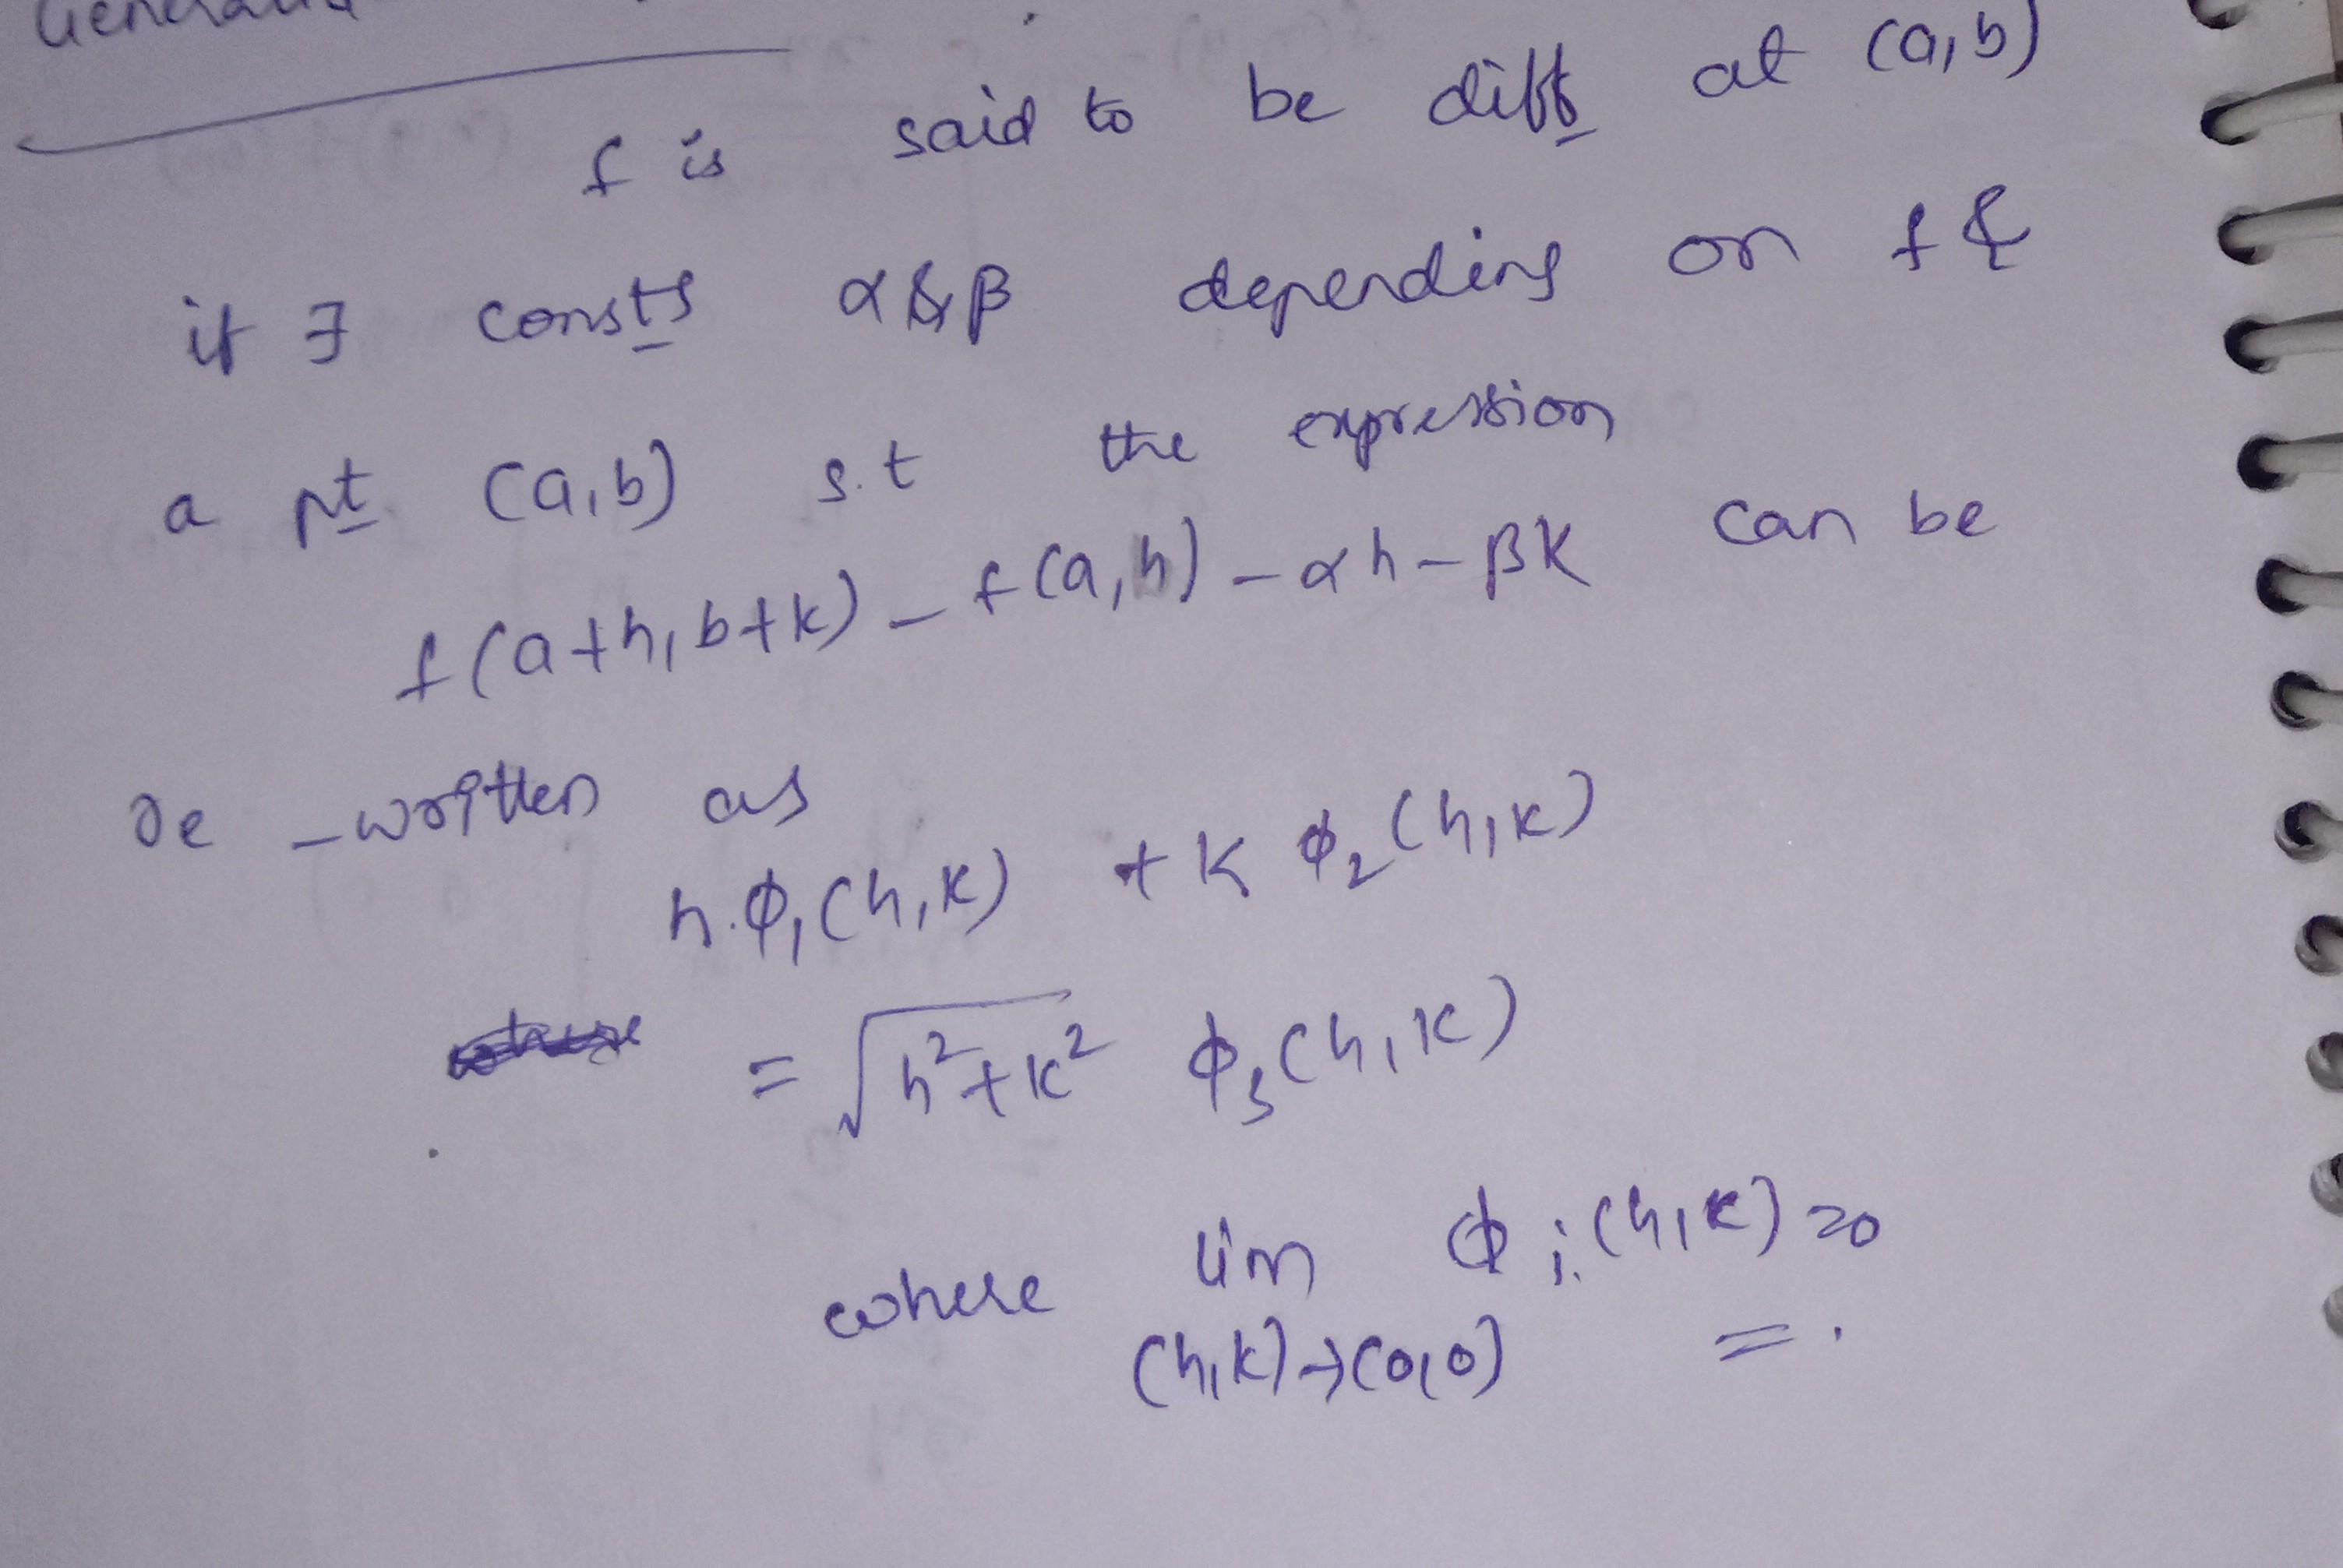 f is said to be diff at (a,b)
if ∃ consts α & β depending on f &
a pt (a,b) s.t the expression
f(a+h,b+k) - f(a,h) - αh - βk can be
re-written as
h.ϕ₁(h,k) + k ϕ₂(h,k)
= √(h²+k²) ϕ₃(h,k)
where lim ϕᵢ(h,k) = 0
(h,k)→(0,0)